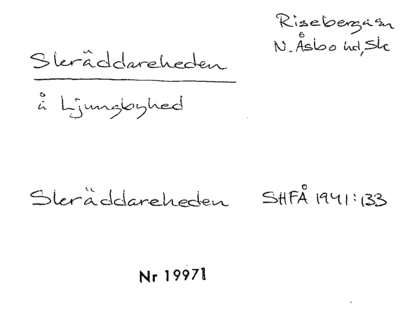 Riseberga sn
N. Åsbo hd, Sk
Skräddareheden
å Ljungbyhed
Skräddareheden SHFÅ 1941:133
Nr 19971